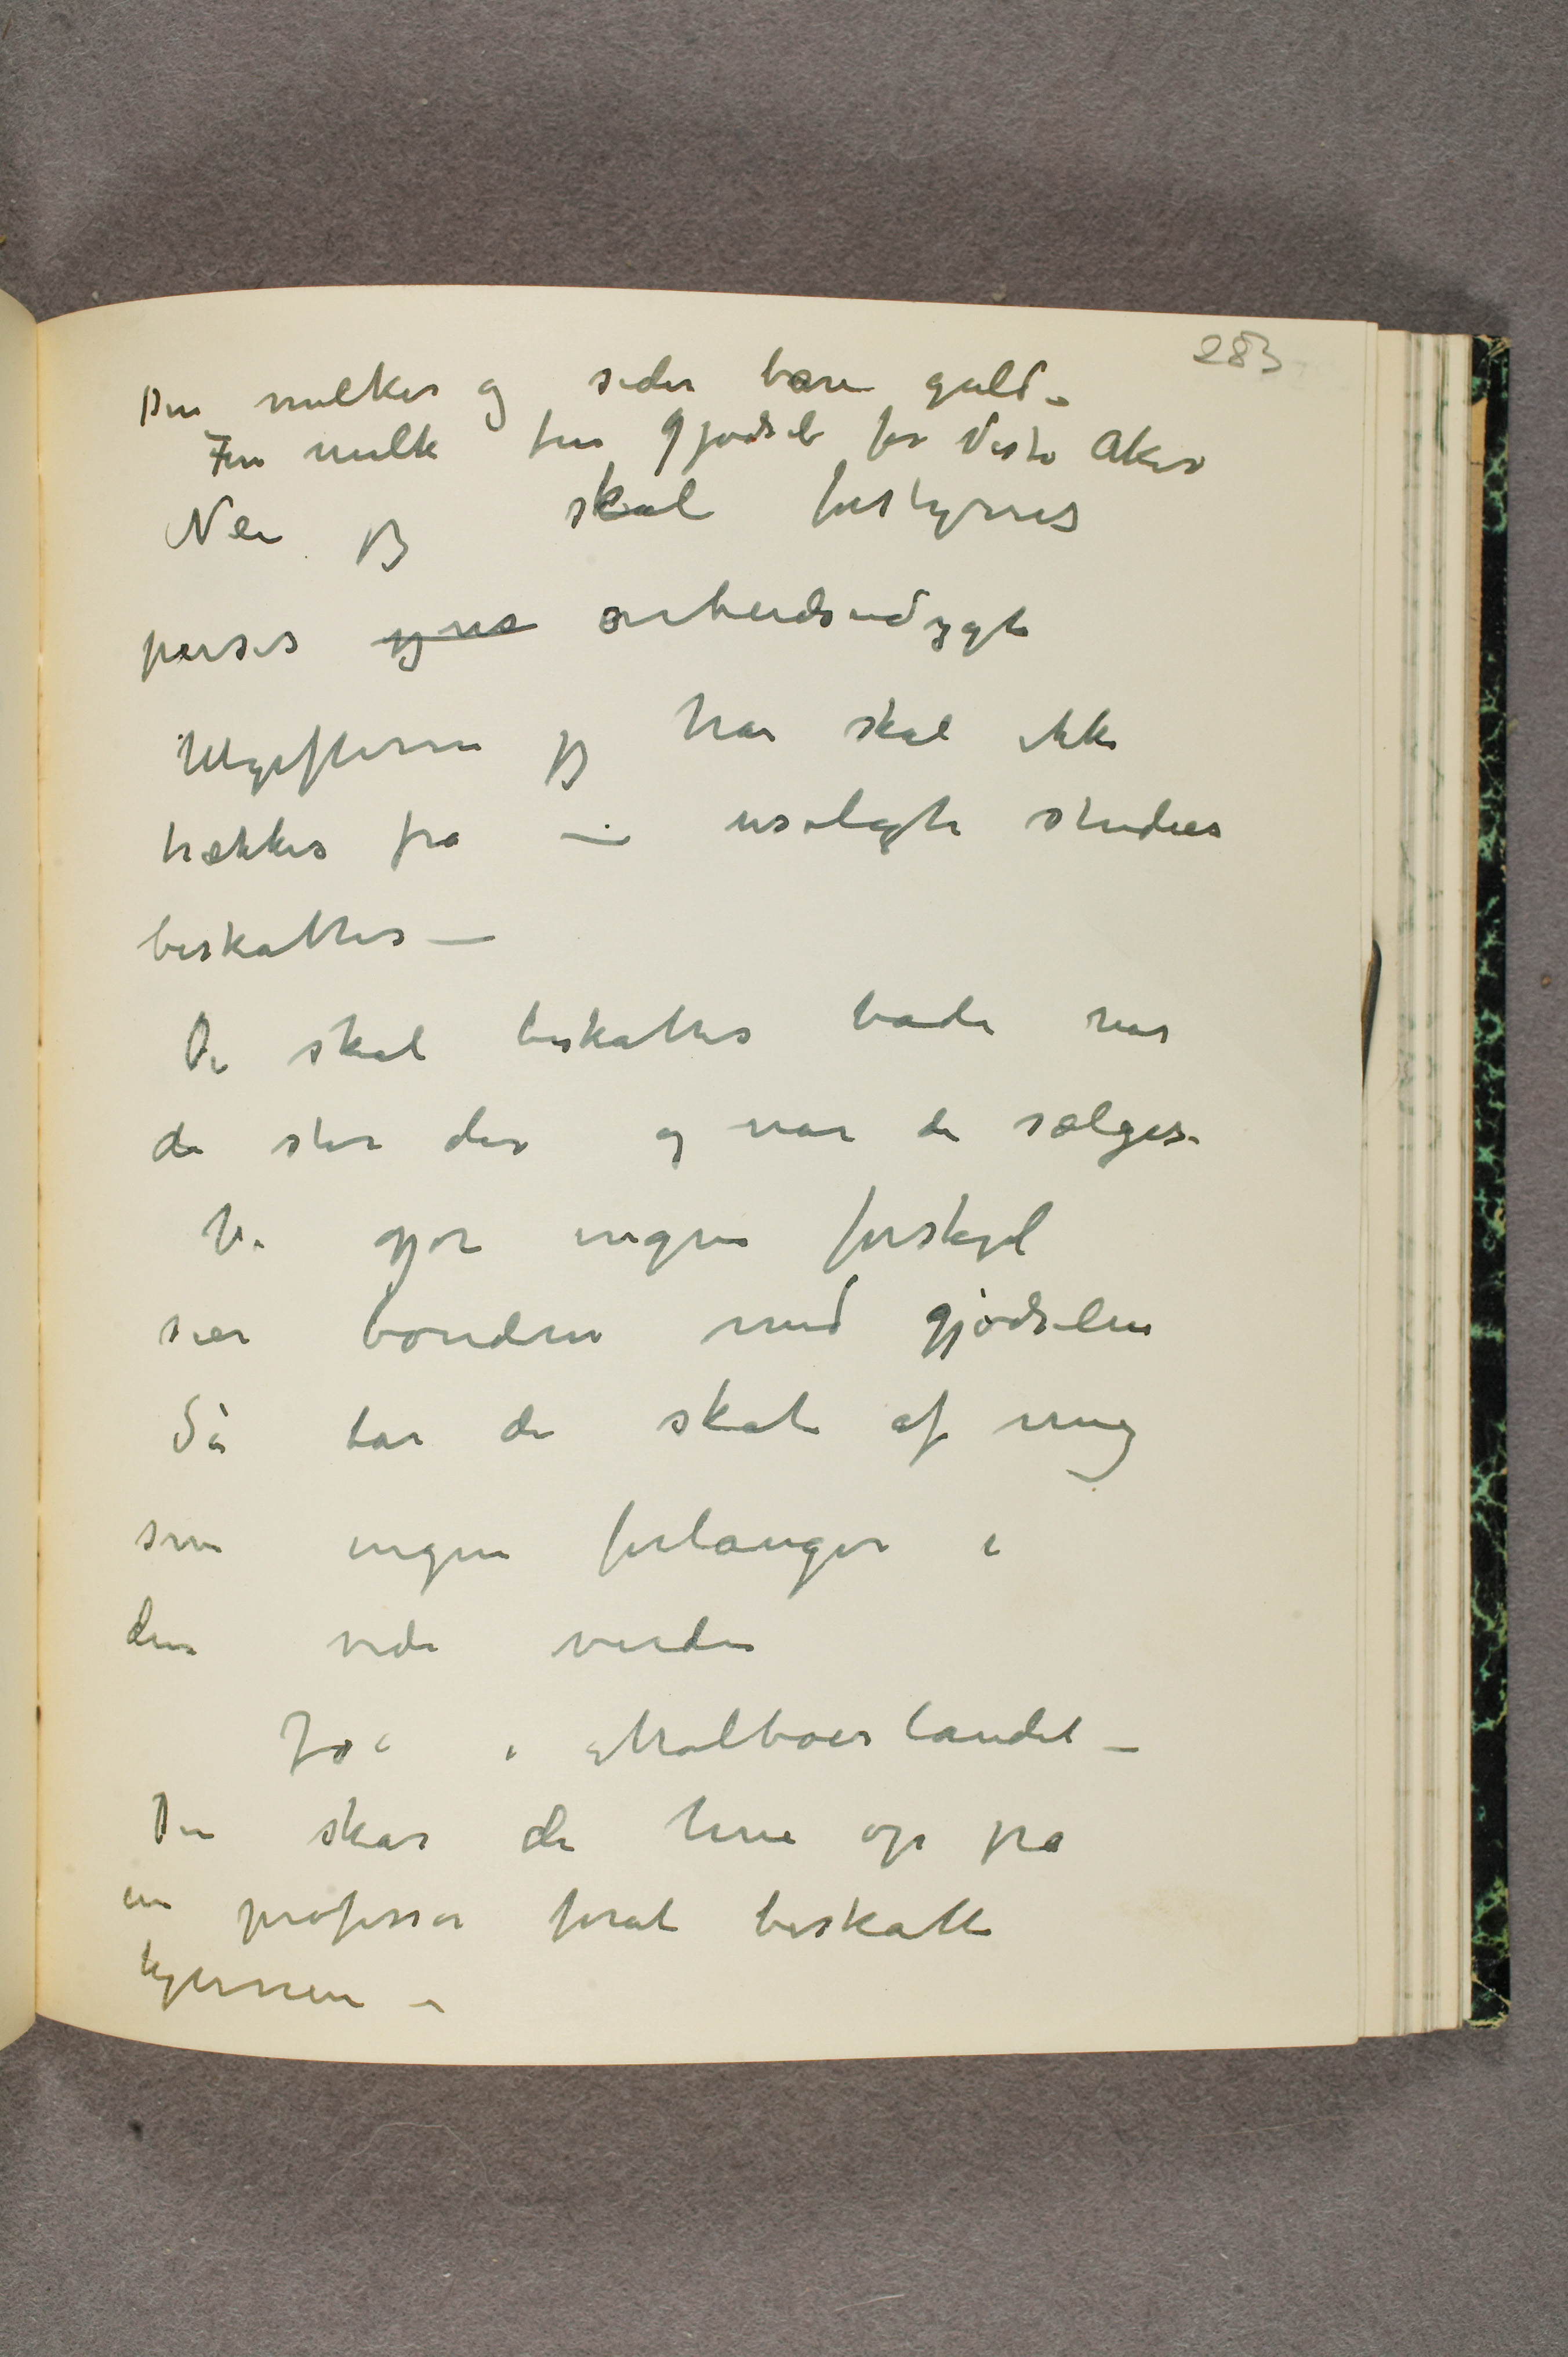 283
Den melker og seder bare guld –
Fin melk fin gjødsel for Vestre Aker
Nei jeg skal forstyrres
perses arbeidsudygtig
Utgifterne jeg har skal ikke
trækkes fra – usolgte studier
beskattes –
De skal beskattes både når
de står der og når de sælges.
Vi gjør ingen forskjel
sier bonden med gjødselen
Så tar de skat af mig
som ingen forlanger i
den vide verden
Jo i Molboerlandet –
Der skar de hue op på
en professor forat beskatte
hjernen –